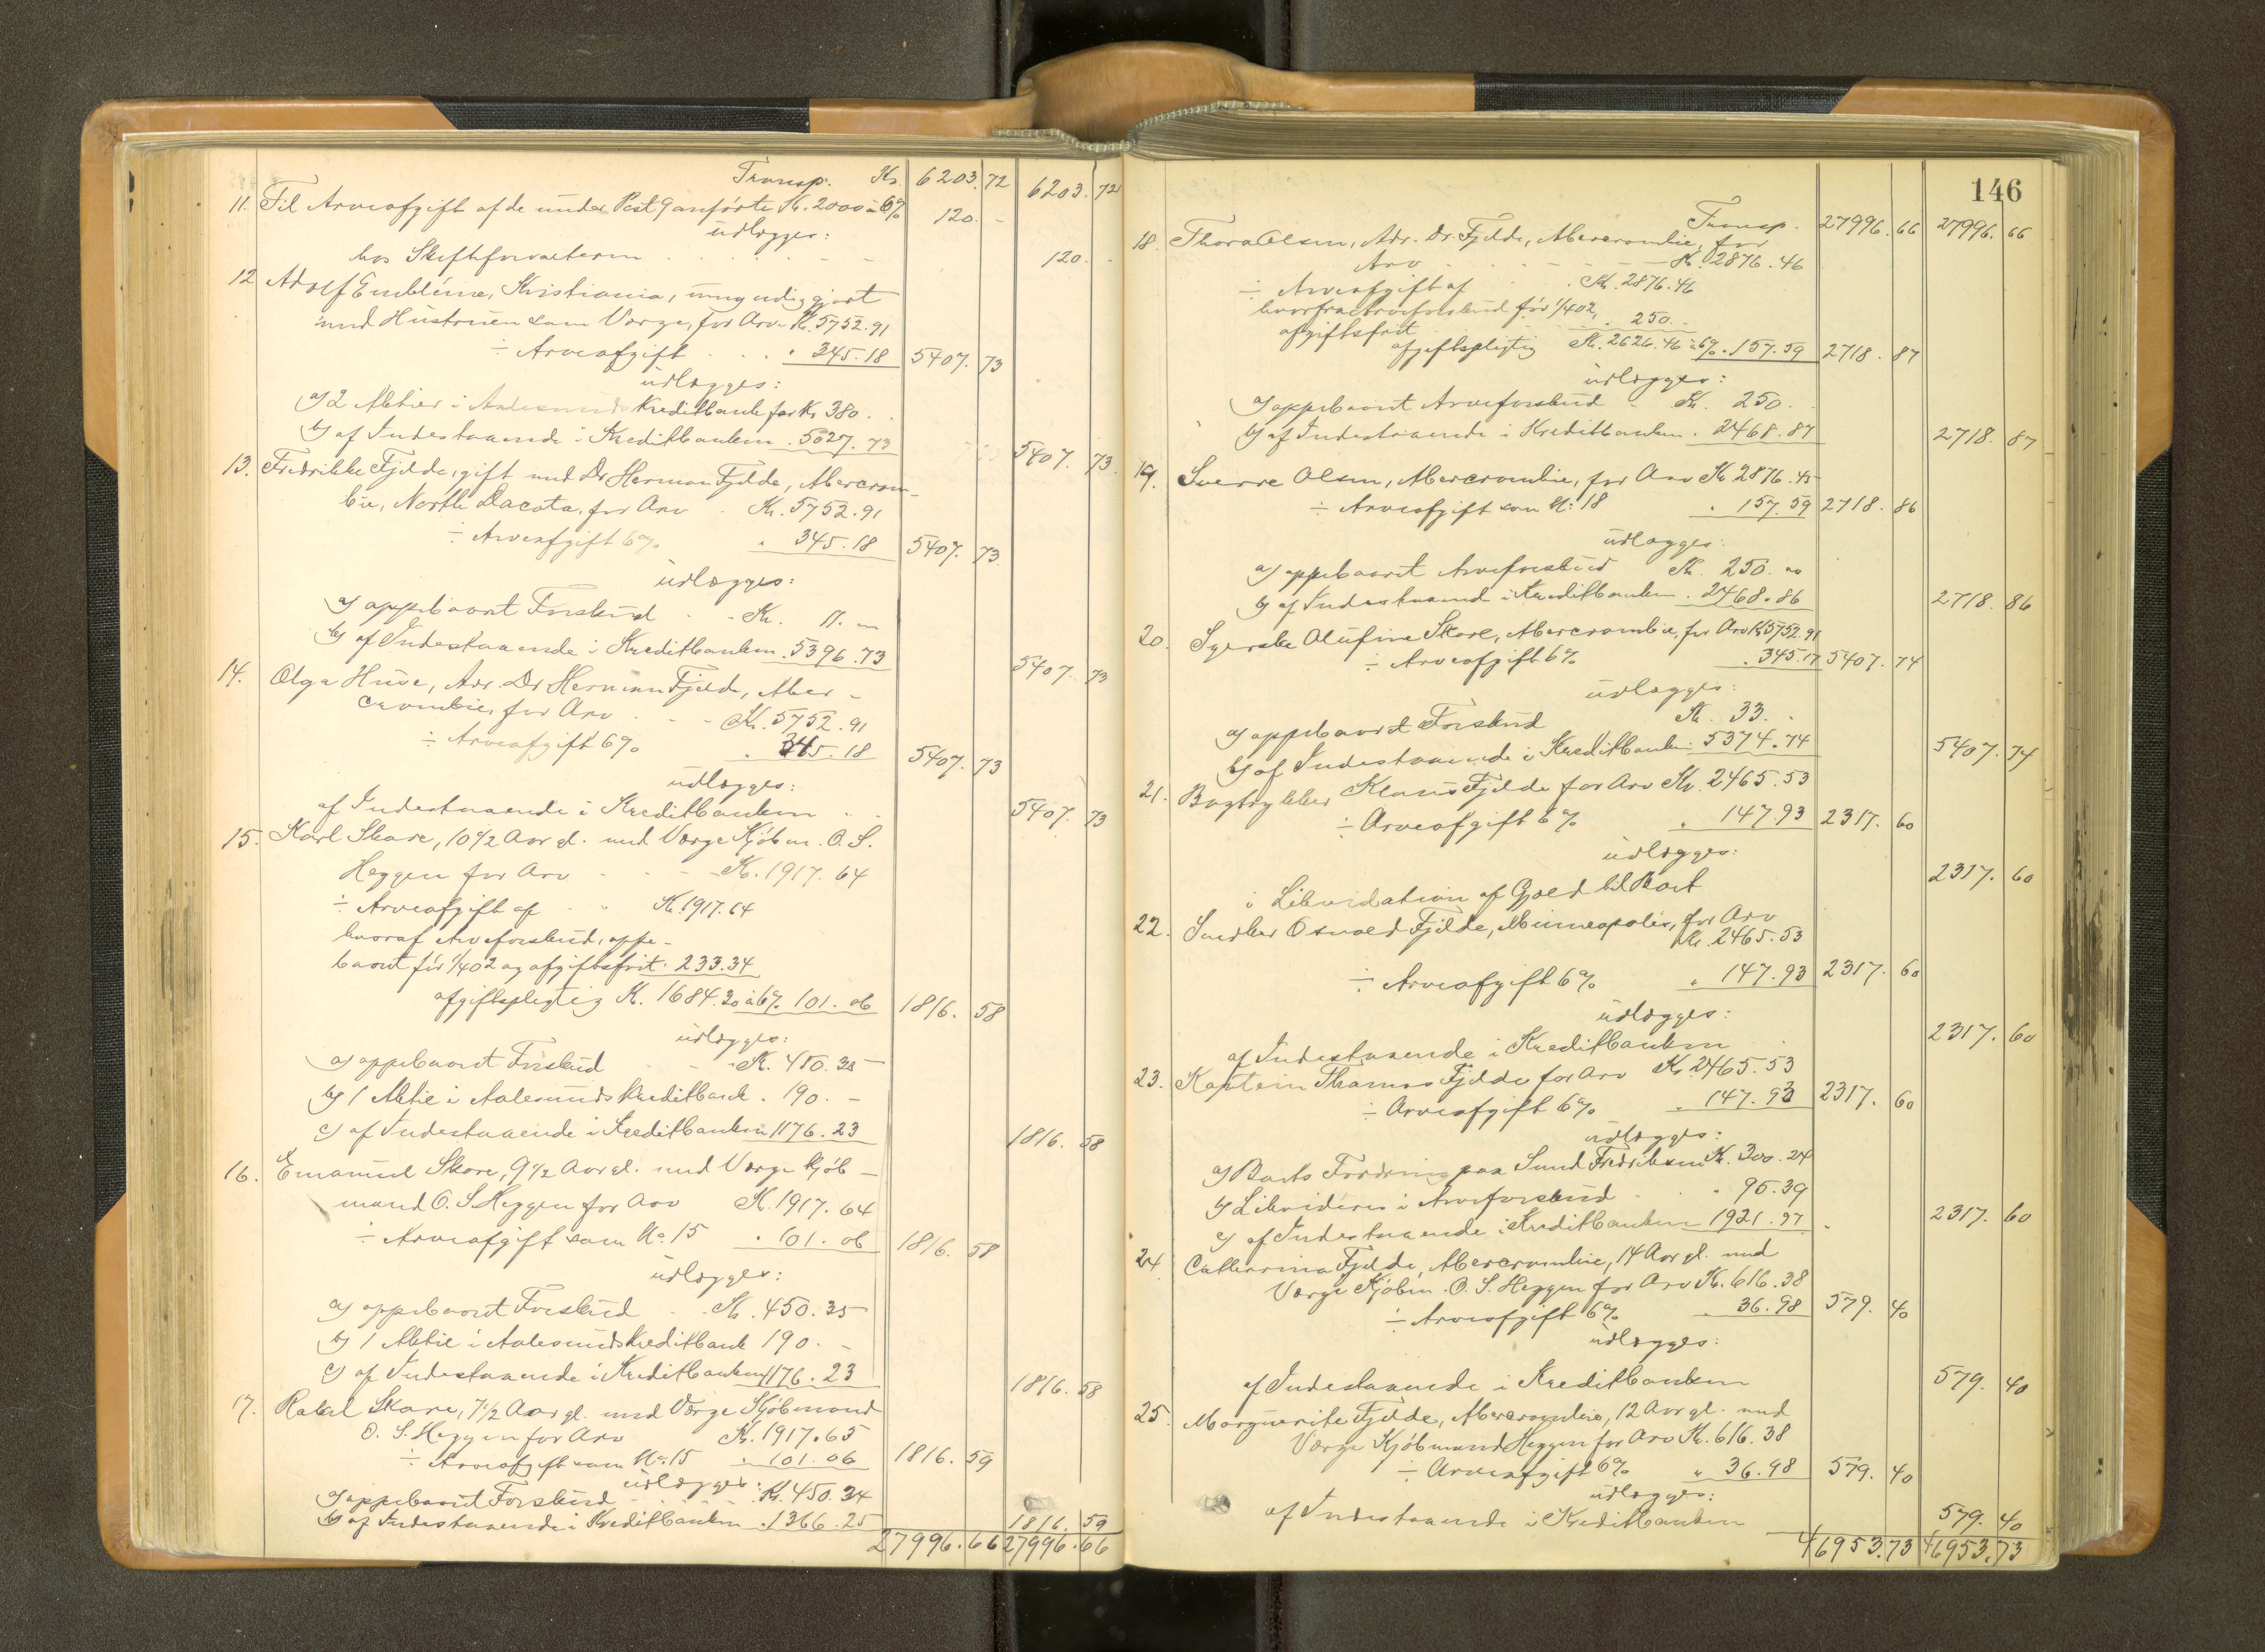 Transp. Kr. 6203.72 6203.72
11. Til Arveafgift af de under Post 9 anførte Kr. 2000 à 6% 120. -
udlægges:
hos Skifteforvalteren 120. -
12 Adolf Emblème, Kristiania, umyndiggjort
med Hustruen som Værge, for Arv Kr. 5752.91
÷ Arveafgift " 345.18 5407.73
udlægges:
a) 2 Aktier i Aalesunds Kreditbank for Kr 380.
b) af Indestaaende i Kreditbanken . 5027.73 5407.73
13. Fredrikke Fjelde, gift med Dr Herman Fjelde, Abercrom-
bie, North Dacota, for Arv Kr. 5752.91
÷ Arveafgift 6% " 345.18 5407.73
udlægges:
a) oppebaaret Forskud - Kr. 11. -
b) af Indestaaende i Kreditbanken . 5396.73 5407.73
14. Olga Huse, Adr. Dr Herman Fjelde, Aber-
crombie, for Arv - Kr. 5752.91
÷ Arveafgift 6% " 345.18 5407.73
udlægges:
af Indestaaende i Kreditbanken 5407.73
15. Karl Skare, 10 1/2 Aar gl. med Værge Kjøbm. O. S.
Heggen for Arv - Kr. 1917.64
÷ Arveafgift af Kr. 1917.64
hvoraf Arveforskud, oppe-
baaret før 1/4 02 og afgiftsfrit . 233.34
afgiftspligtig Kr. 1684.30 à 6% 101.06 1816.58
udlægges:
a) oppebaaret Forskud - Kr. 450.35
b) 1 Aktie i Aalesunds Kreditbank . 190. -
c) af Indestaaende i Kreditbanken 1176.23 1816.58
16. Emanuel Skare, 9 1/2 Aar gl. med Værge Kjøb-
mand O. S. Heggen for Arv Kr. 1917.64
÷ Arveafgift som No 15 " 101.06 1816.58
udlægges:
a) oppebaaret Forskud - Kr. 450.35
b) 1 Aktie i Aalesunds Kreditbank 190. -
c) af Indestaaende i Kreditbanken 1176.23 1816.58
17. Rakel Skare, 7 1/2 Aar gl. med Værge Kjøbmand
O. S. Heggen for Arv Kr. 1917.65
÷ Arveafgift som No 15 " 101.06 1816.59
udlægges:
a) oppebaaret Forskud Kr. 450.34
b) af Indestaaende i Kreditbanken . 1366.25 1816.59
27996.66 27996.66
146
Transp. 27996.66 27996.66
18. Thora Olsen, Adr. Dr. Fjelde, Abercrombie, for
Arv - Kr. 2876.46
÷ Arveafgift af Kr. 2876.46
hvorfra Arveforskud før 1/4 02,
afgiftsfrit . 250. -
afgiftspligtig Kr. 2626.46 à 6% . 157.59 2718.87
udlægges:
a) oppebaaret Arveforskud - Kr. 250. -
b) af Indestaaende i Kreditbanken . 2468.87 2718.87
19. Sverre Olsen, Abercrombie, for Arv Kr 2876.45
÷ Arveafgift som No 18 . 157.59 2718.86
udlægges:
a) oppebaaret Arveforskud Kr. 250. -
b) af Indestaaend i Kreditbanken . 2468.86 2718.86
20. Syerske Olufine Skare, Abercrombie, for Arv Kr 5752.91
÷ Arveafgift 6% . 345.17 5407.74
udlægges:
a) oppebaaret Forskud Kr. 33. -
b) af Indestaaende i Kreditbanken 5374.74 5407.74
21. Bogtrykker Klaus Fjelde for Arv Kr. 2465.53
÷ Arveafgift 6% " 147.93 2317.60
udlægges:
i Likvidation af Gjæld til Boet 2317.60
22. Snedker Osvald Fjelde, Minneapolis, for Arv
Kr. 2465.53
÷ Arveafgift 6% " 147.93 2317.60
udlægges:
af Indestaaende i Kreditbanken 2317.60
23. Kaptein Thomas Fjelde for Arv Kr. 2465.53
÷ Arveafgift 6% " 147.93 2317.60
udlægges:
a) Boets Fordring paa Sund Fredriksen Kr. 300.24
b) Likvideres i Arveforskud " 95.39
c) af Indestaaende i Kreditbanken 1921.97 2317.60
24 Catherrina Fjelde, Abercrombie, 14 Aar gl. med
Værge Kjøbm. O. S. Heggen for Arv Kr. 616.38
÷ Arveafgift 6% " 36.98 579.40
udlægges:
af Indestaaende i Kreditbanken 579.40
25. Marguerite Fjelde, Abercrombie, 12 Aar gl. med
Værge Kjøbmand Heggen for Arv Kr. 616.38
÷ Arveafgift 6% " 36.98 579.40
udlægges:
af Indestaaende i Kreditbanken 579.40
46953.73 46953.73